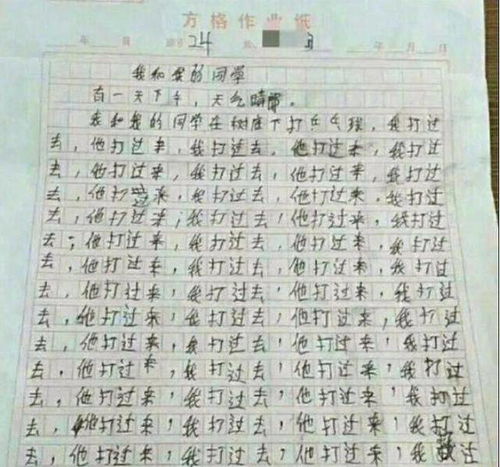 方格作业纸
24
年 月 日
我和我的同學
有一天下午，天气晴。
我和我的同学在树底下打乒乓球，我打过
去，他打过来，我打过去，他打过来，我打过
去，他打过来，我打过去，他打过来，我打过
去，他打过来，我打过去，他打过来，我打过
去，他打过来，我打过去，他打过来，我打过
去，他打过来，我打过去，他打过来，我打过
去，他打过来，我打过去，他打过来，我打过
去，他打过来，我打过去，他打过来，我打过
去，他打过来，我打过去，他打过来，我打过
去，他打过来，我打过去，他打过来，我打过
去，他打过来，我打过去，他打过来，我打过
去，他打过来，我打过去，他打过来，我打过
去，他打过来，我打过去，他打过来，我打过
去，他打过来，我打过去，他打过来，我过